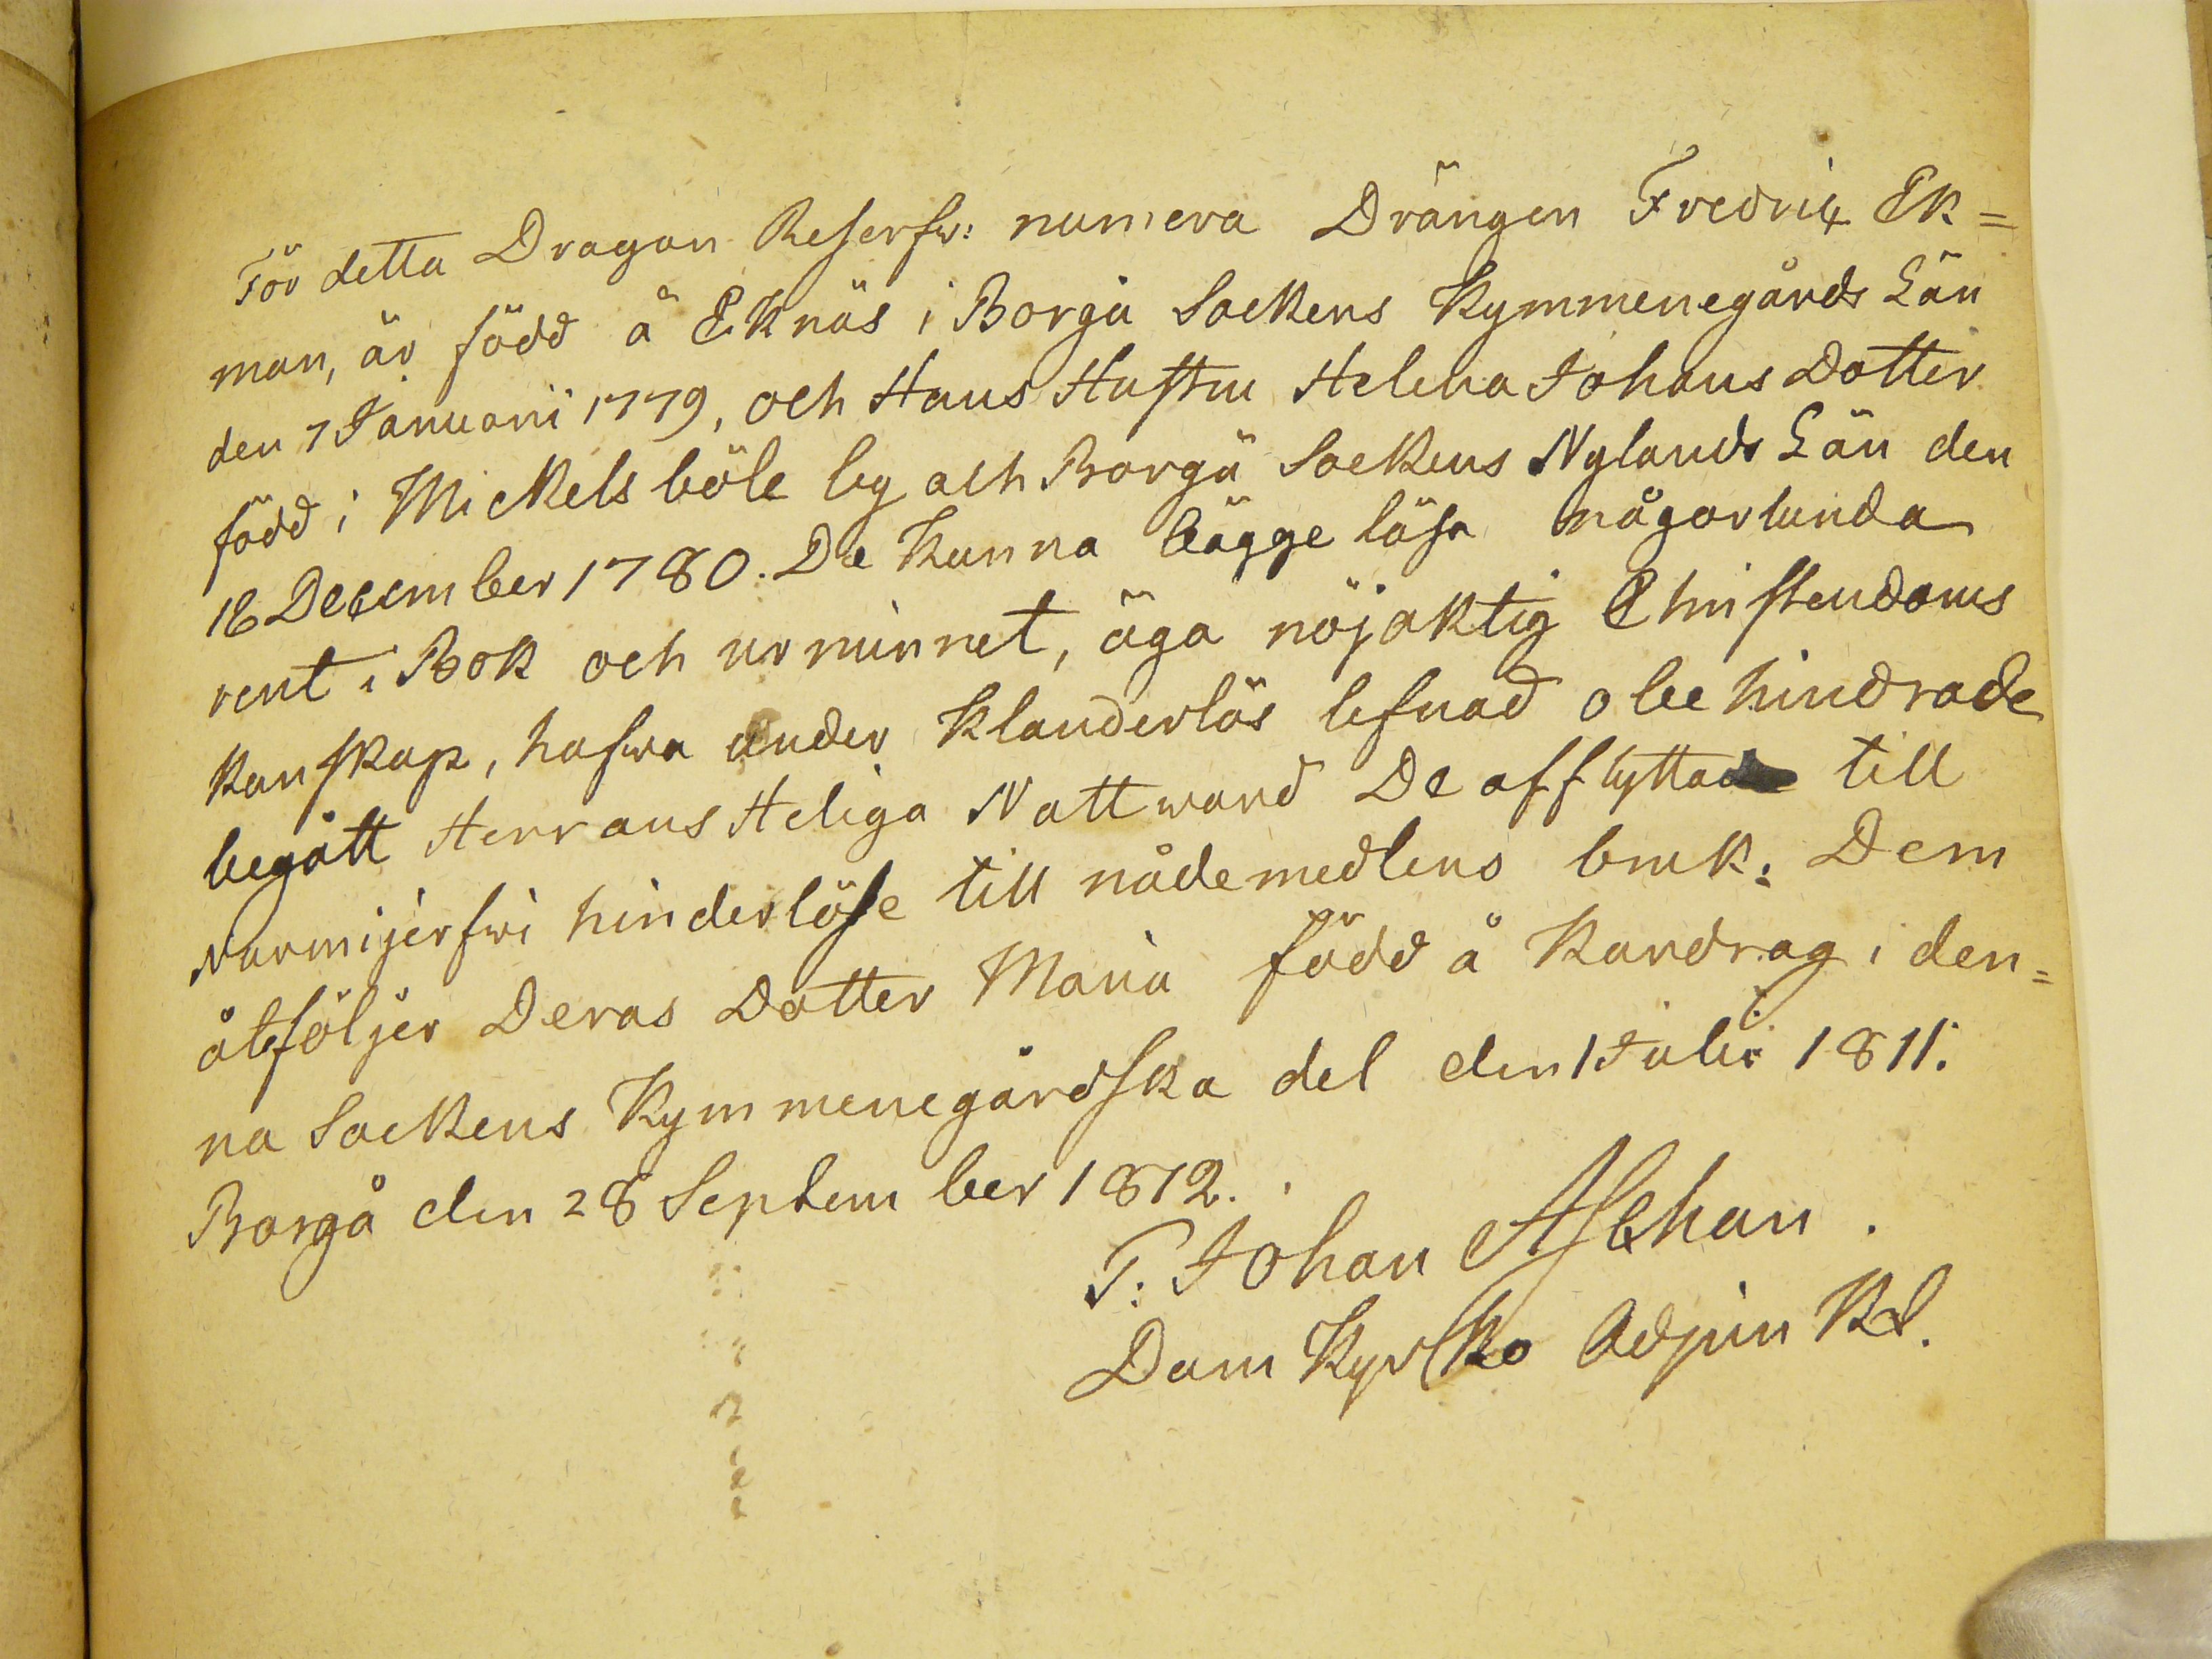 För detta Dragon Reserfw: numera Drängen Fredric Ek=
man, är född å Eknäs i Borgå Sockens Kymmenegårds Län
den 7 Januarii 1779, och Hans Hustru Helena Johans Dotter
född i Mickelsböle by och Borgå Sockens Nylands Län den
16 December 1780. De kunna bägge läsa någorlunda
rent i Bok och ur minnet, äga nöjaktig Christendoms
kunskap, hafwa under klanderlös lefnad obehindrade
begått Herrans Heliga Nattward De afflyttade till
Nurmijerfwi hinderlöse till nådemedlens bruk: Dem
åtföljer Deras Dotter Maria född å Kardrag i den=
na Sockens Kymmenegårdska del den 1 Julii 1811.
Borgå den 28 September 1812.
Johan Aschan.
Dom Kyrko Adjunkt.